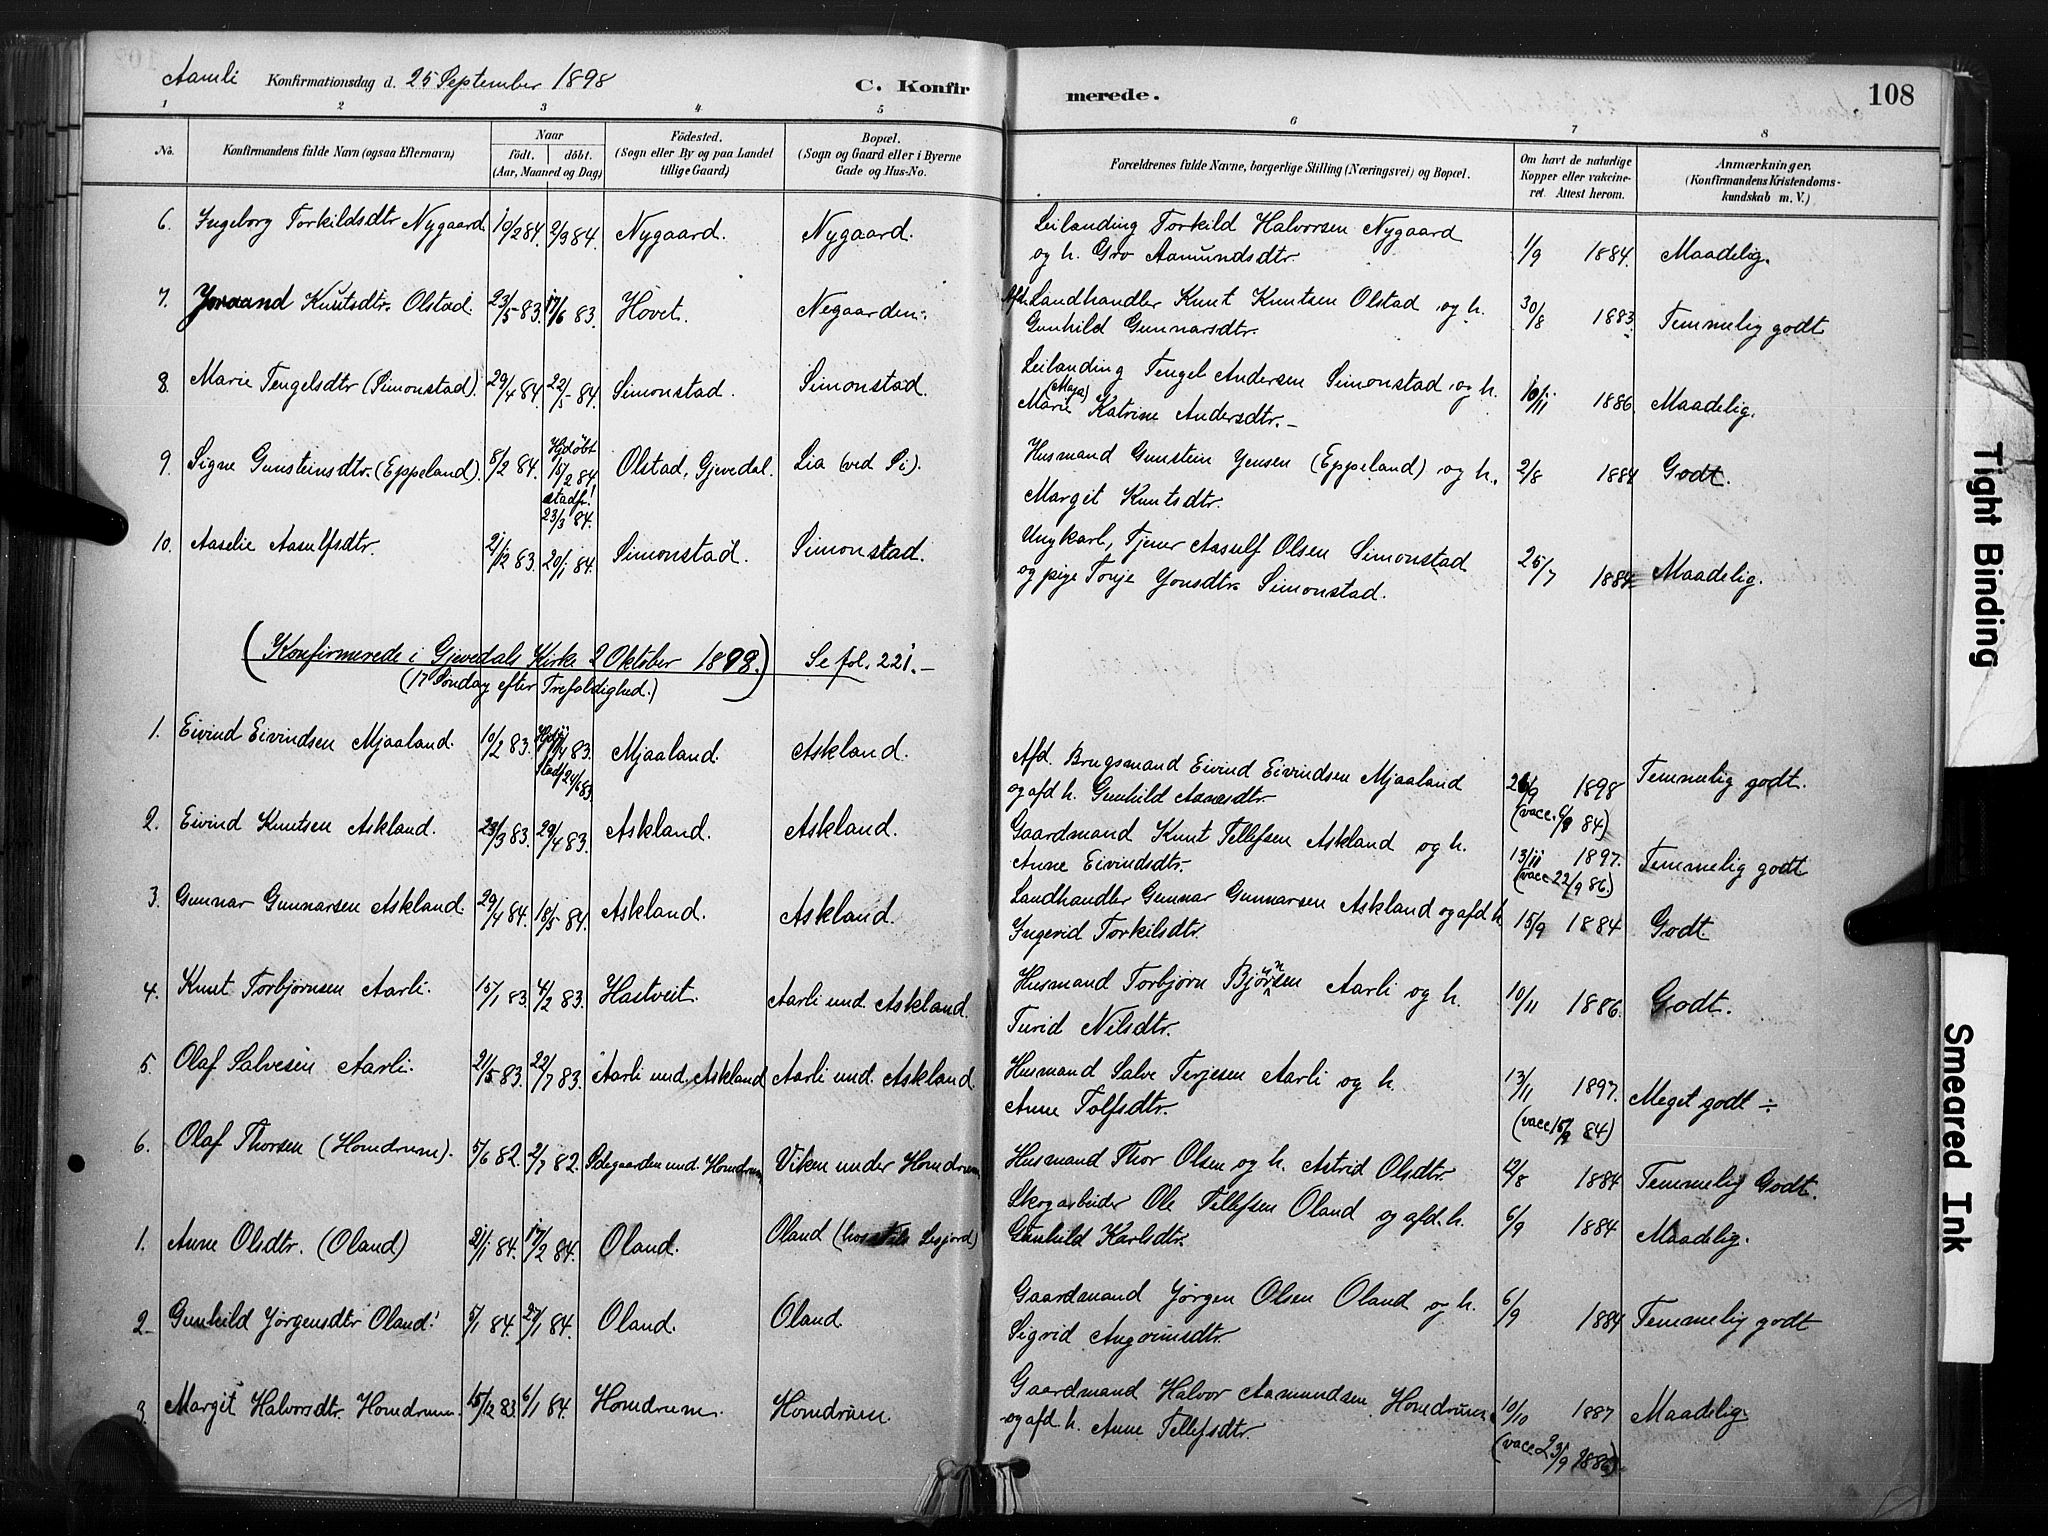 Aamli Konfirmationsdag d. 25 September 1898
C. Konfirmerede.
108
1 2 3 4 5 6 7 8
No. Konfirmandens fulde Navn (ogsaa Efternavn) Naar födt. döbt. (Aar, Maaned og Dag) Födested. (Sogn eller By og paa Landet tillige Gaard) Bopæl. (Sogn og Gaard eller i Byerne Gade og Hus-No. Forældrenes fulde Navne, borgerlige Stilling (Næringsvei) og Bopæl. Om havt de naturlige Kopper eller vakcineret Attest herom. Anmærkninger. (Konfirmandens Kristendomskundskab m. V.)
6. Ingeborg Torkildsdtr Nygaard 19/2 84. 2/3 84. Nygaard. Nygaard. Leilanding Torkild Halvorsen Nygaard
og h. Gro Aamundsdtr. 1/9 1884. Maadelig.
7. Joraand Knutsdtr. Olstad. 23/5 83. 17/6 83. Hovet. Negaarden. Afd. Landhandler Knut Knutsen Olstad og h.
Gunhild Gunnarsdtr. 30/8 1883. Temmelig godt
8. Marie Tengelsdtr (Simonstad). 29/4 84. 22/5 84. Simonstad. Simonstad. Leilanding Tengel Andersen Simonstad og h.
Marie (Maja) Katrine Andersdtr. 10/11 1886. Maadelig.
9. Signe Gunsteinsdtr. (Eppeland). 8/2 84. Hjdöbt 15/2 84 stadf! 23/3 84. Olstad, Gjevedal. Lia (ved Si). Husmand Gunstein Jensen (Eppeland) og h.
Margit Knutsdtr. 2/8 1884 Godt.
10. Aaselie Aasulfsdtr. 21/12 83. 20/1 84. Simonstad. Simonstad. Ungkarl, Tjener Aasulf Olsen Simonstad
og pige Tonje Jonsdtr. Simonstad. 25/7 1884 Maadelig.
(Konfirmerede i Gjevedals Kirke 2 Oktober 1898.) Se fol. 221.
(17 Söndag efter Trefoldighed.)
1. Eivind Eivindsen Mjaaland. 10/2 83. 83. Stadf. 24/6 83. Mjaaland. Askland. Afd. Brugsmand Eivind Eivindsen Mjaaland
og afd h. Gunhild Aanesdtr. 26/9 1898 (vacc. 6/9 84) Temmelig godt.
2. Eivind Knutsen Askland. 23/3 83. 29/4 83. Askland. Askland. Gaardmand Knut Tellefsen Askland og h.
Anne Eivindsdtr. 13/11 1897. (vacc 22/9 86.) Temmelig godt
3. Gunnar Gunnarsen Askland. 29/4 84. 18/5 84. Askland. Askland. Landhandler Gunnar Gunnarsen Askland og afd h.
Ingerid Torkilsdtr. 15/9 1884 Godt.
4. Knut Torbjørnsen Aarli. 15/1 83. 4/2 83. Hastveit. Aarli und. Askland. Husmand Torbjørn Bjørnsen Aarli og h.
Turid Nilsdtr. 10/11 1886. Godt.
5. Olaf Salvesen Aarli. 21/5 83. 22/7 83. Aarli und. Askland Aarli und. Askland. Husmand Salve Terjesen Aarli og h.
Anne Tolfsdtr. 13/11 1897. (vacc 15/9 84) Meget godt ÷
6. Olaf Thorsen (Homdrum). 5/6 82. 2/7 82. Ödegaarden und. Homdrum Viken under Homdrum Husmand Thor Olsen og h. Astrid Olsdtr. 12/8 1884 Temmelig Godt.
1. Anne Olsdtr. (Oland) 21/1 84. 17/2 84. Oland. Oland (hos Nils Lisjord) Skogarbeider Ole Tellefsen Oland og afd. h.
Gunhild Karlsdtr. 6/9 1884 Maadelig.
2. Gunhild Jørgensdtr Oland. 5/1 84. 27/1 84. Oland. Oland. Gaardmand Jørgen Olsen Oland og h.
Sigrid Angrimsdtr. 6/9 1884 Temmelig godt
3. Margit Halvorsdtr. Homdrum. 15/12 83. 6/1 84. Homdrum. Homdrum. Gaardmand Halvor Aamundsen Homdrum
og afd h. Anne Tellefsdtr. 10/10 1887 (vacc 23/9 1886). Maadelig.
Tight Binding
Smeared Ink